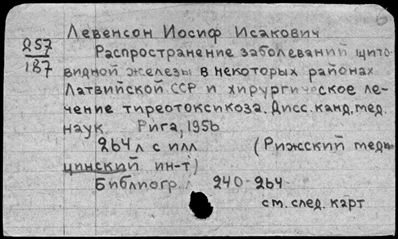 Левенсон Иосиф Исакович
257
187
Распространение заболеваний щито-
видной железы в некоторых районах
Латвийской ССР и хирургическое ле-
чение тиреотоксикоза. Дисс. канд. мед.
наук. Рига, 1956
264 л с илл (Рижский меди-
цинский ин-т)
Библиогр л 240-264
см. след. карт